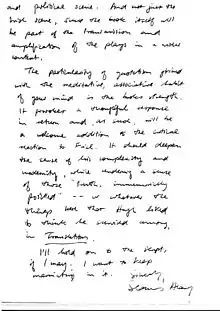 and political scene. And not just the
Irish scene, since the book itself will
be part of the transmission and
amplification of the plays in a wider
context.
The particularity of quotation joined
with the meditative, associative habit
of your mind is the book's strength.
It provokes a thoughtful response
in return and, as such, will be
a welcome addition to the critical
reaction to Friel. It should deepen
the sense of his complexity and
modernity, while underlining a sense
of those truths, immemorially
posited - or whatever the
that Hugh liked
to think he survived among,
in Translations.
I'll hold on to the script,
if I may. I want to keep
in it. Sincerely,
Seamus Heaney